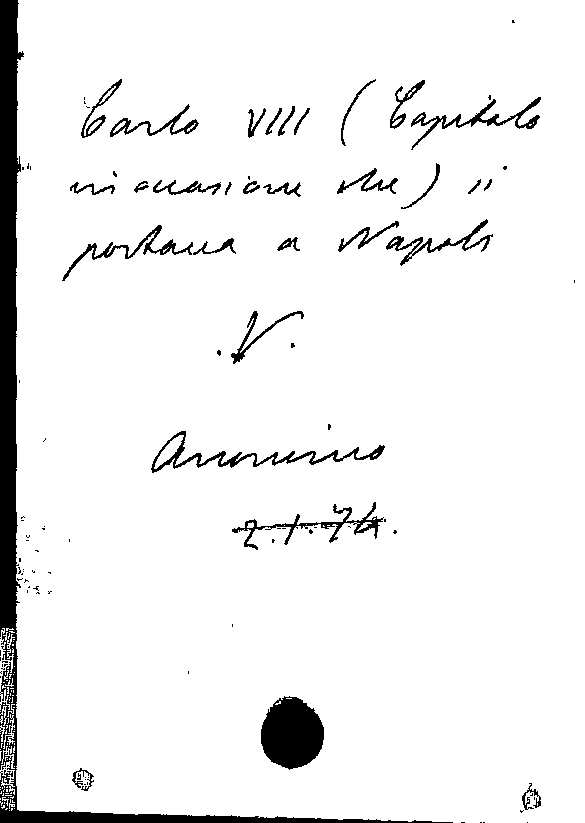 Carlo VIII (Capitolo
in occasione che) si
portava a Napoli
.V.
Anonimo
2.1.74.